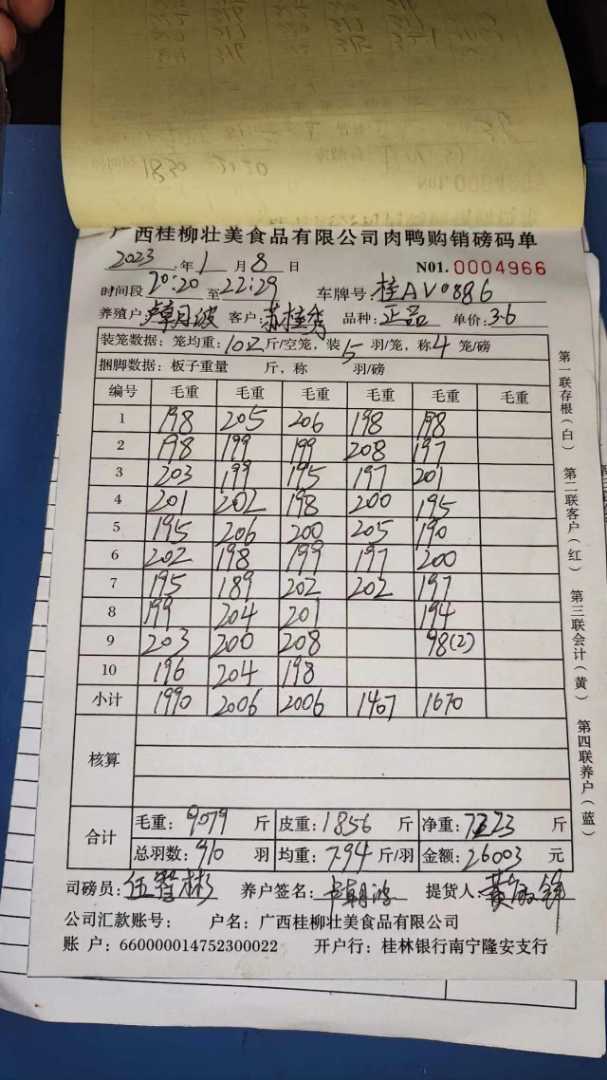 广西桂柳壮美食品有限公司肉鸭购销磅码单
2023 年 1 月 8 日 N01. 0004966
时间段 20:20 至 22:29 车牌号: 桂AV0886
养殖户: 客户: 苏桂秀 品种: 正品 单价: 3.6
装笼数据: 笼均重: 10.2 斤/空笼, 装 5 羽/笼, 称 4 笼/磅
捆脚数据: 板子重量 斤, 称 羽/磅
编号 毛重 毛重 毛重 毛重 毛重 毛重
1 198 205 206 198 198
2 198 199 199 208 197
3 203 199 195 197 201
4 201 202 198 200 195
5 195 206 200 205 190
6 202 198 199 197 200
7 195 189 202 202 197
8 199 204 201 194
9 203 200 208 98(2)
10 196 204 198
小计 1990 2006 2006 1407 1670
核算
合计 毛重: 9079 斤 皮重: 1856 斤 净重: 7223 斤
总羽数: 910 羽 均重: 7.94 斤/羽 金额: 26003 元
司磅员: 养户签名: 提货人:
公司汇款账号: 户名: 广西桂柳壮美食品有限公司
账 户: 660000014752300022 开户行: 桂林银行南宁隆安支行
第一联存根(白) 第二联客户(红) 第三联会计(黄) 第四联养户(蓝)